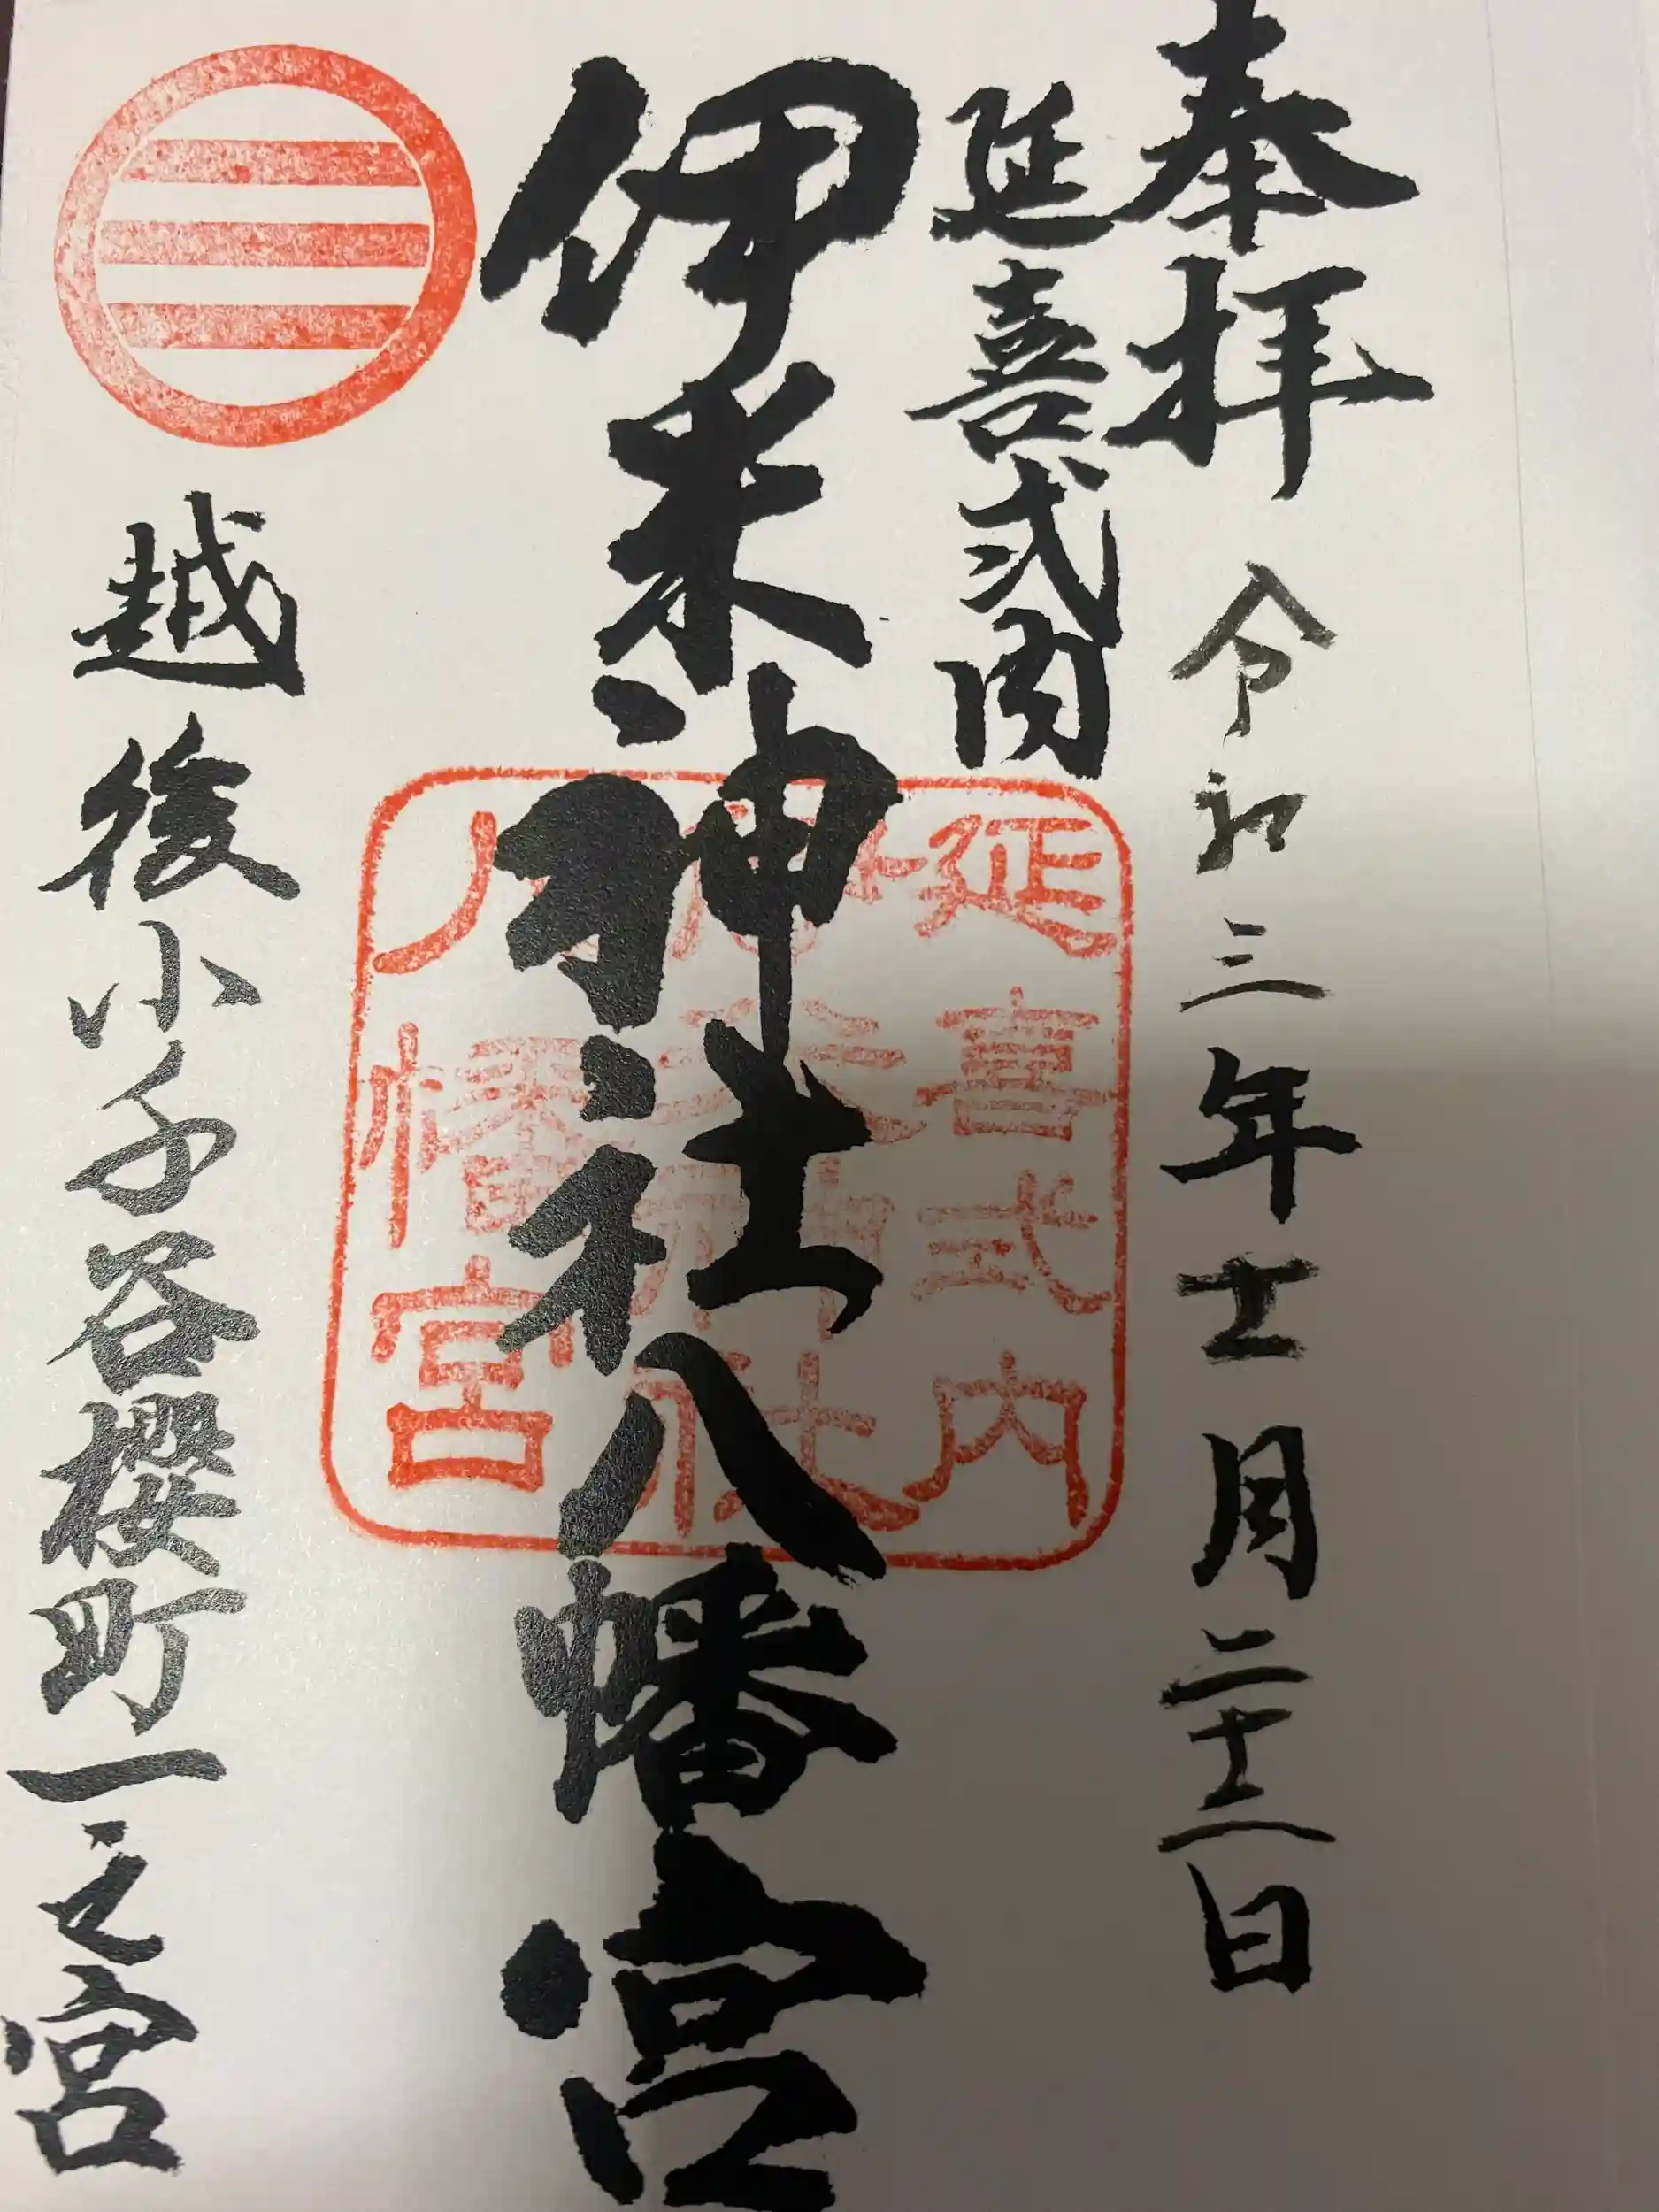 奉拝 令和三年十一月二十二日
延喜式内
伊米神社八幡宮
越後小千谷櫻町一之宮
延喜式内
伊米神社
八幡宮